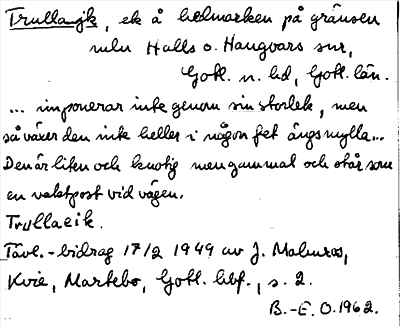 Trullaajk, ek å helmarken på gränsen
mlm Halls o. Hangvars snr,
Gotl. n. hd, Gotl. län.
... imponerar inte genom sin storlek, men
så växer den inte heller i någon fet ängsmylla...
Den är liten och knotig men gammal och står som
en vaktpost vid vägen.
Trullaeik.
Tävl.-bidrag 17/2 1949 av J. Malmros,
Kvie, Martebo, Gotl. hbf., s. 2.
B.-E. O. 1962.